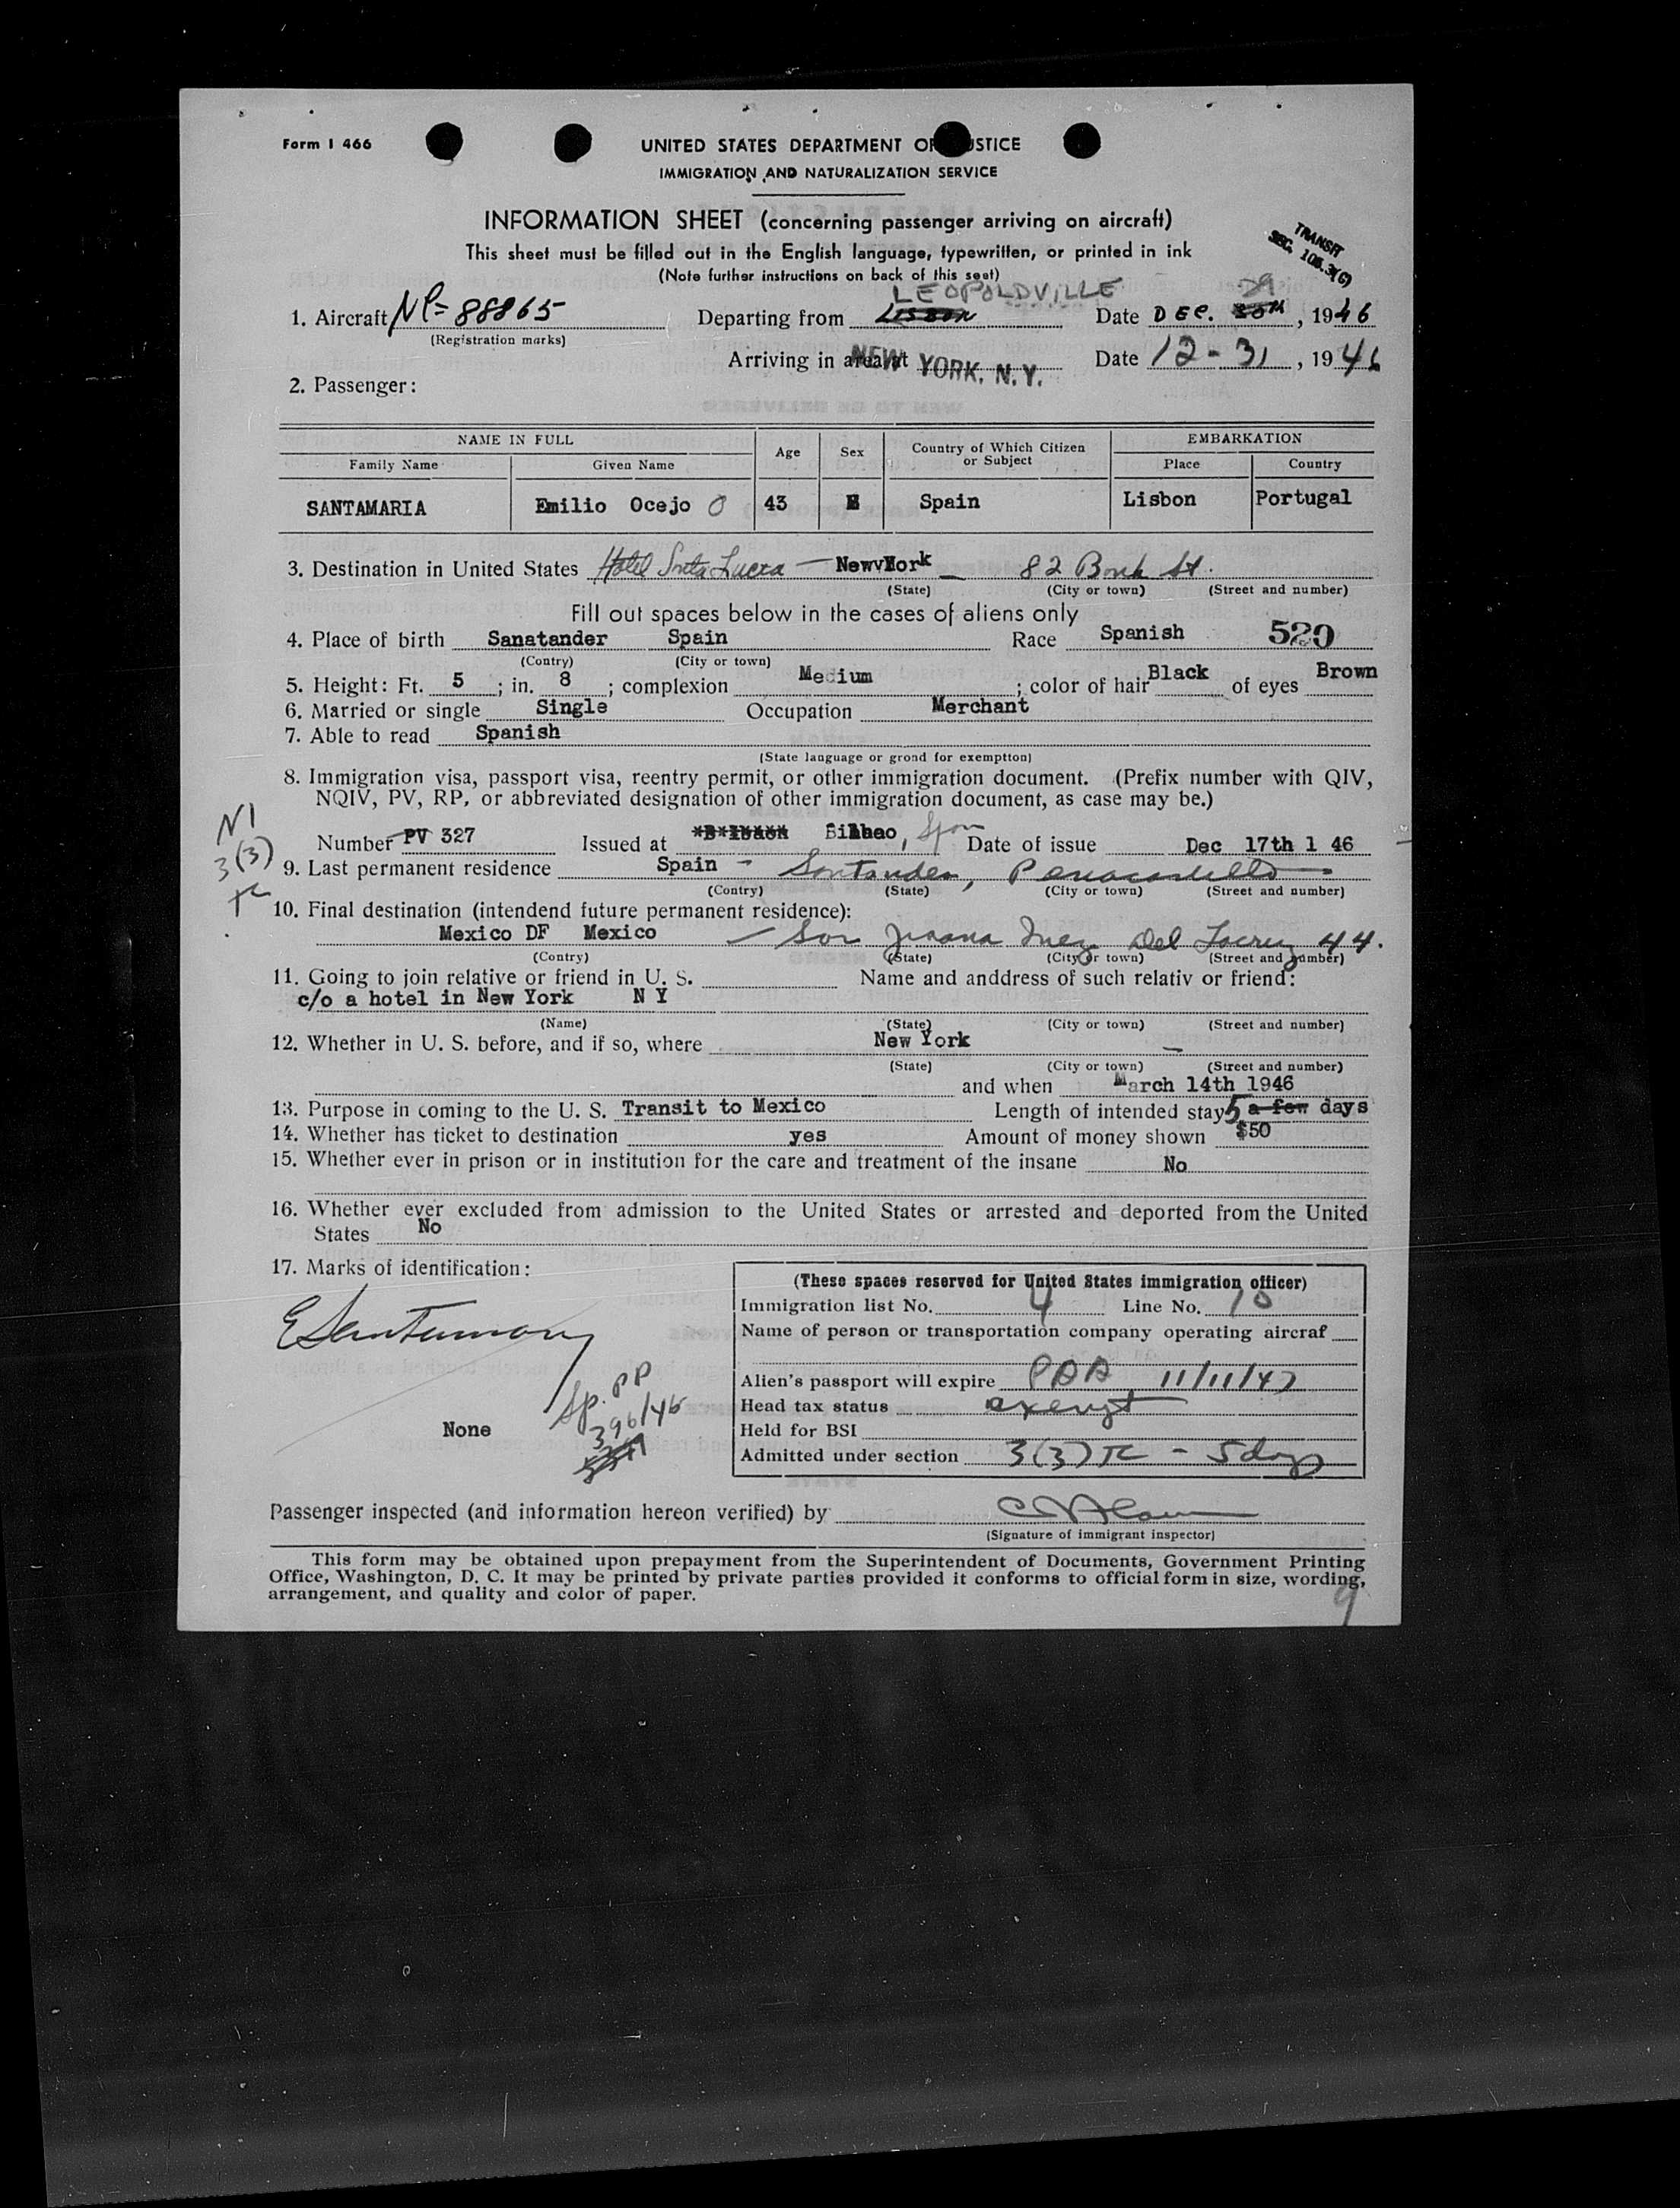 Form I 466
UNITED STATES DEPARTMENT OF JUSTICE
IMMIGRATION AND NATURALIZATION SERVICE
INFORMATION SHEET (concerning passenger arriving on aircraft)
This sheet must be filled out in the English language, typewritten, or printed in ink
(Note further instructions on back of this seet)
TRANSIT
SEC. 105.3(G)
LEOPOLDVILLE 29
1. Aircraft NC-88865 Departing from LISBON Date DEC. 30TH, 1946
(Registration marks)
Arriving in area at NEW YORK, N.Y. Date 12-31, 1946
2. Passenger:
NAME IN FULL Age Sex Country of Which Citizen or Subject EMBARKATION
Family Name Given Name Place Country
SANTAMARIA Emilio Ocejo O 43 M Spain Lisbon Portugal
3. Destination in United States Hotel Santa Lucia — NewvYork — 82 Bank St.
(State) (City or town) (Street and number)
Fill out spaces below in the cases of aliens only
4. Place of birth Sanatander Spain Race Spanish 520
(Contry) (City or town)
5. Height: Ft. 5; in. 8; complexion Medium; color of hair Black of eyes Brown
6. Married or single Single Occupation Merchant
7. Able to read Spanish
(State language or grond for exemption)
8. Immigration visa, passport visa, reentry permit, or other immigration document. (Prefix number with QIV,
NQIV, PV, RP, or abbreviated designation of other immigration document, as case may be.)
NI
3(3)
TC
Number PV 327 Issued at Bilbao, Spain Date of issue Dec 17th 1 46
9. Last permanent residence Spain - Santander,
(Contry) (State) (City or town) (Street and number)
10. Final destination (intendend future permanent residence):
Mexico DF Mexico — Sor Juana Inez Del 44.
(Contry) (State) (City or town) (Street and number)
11. Going to join relative or friend in U. S. Name and anddress of such relativ or friend:
c/o a hotel in New York N Y
(Name) (State) (City or town) (Street and number)
12. Whether in U. S. before, and if so, where New York —
(State) (City or town) (Street and number)
and when March 14th 1946
13. Purpose in coming to the U. S. Transit to Mexico Length of intended stay 5 a few days
14. Whether has ticket to destination yes Amount of money shown $50
15. Whether ever in prison or in institution for the care and treatment of the insane No
16. Whether ever excluded from admission to the United States or arrested and deported from the United
States No
17. Marks of identification:
E Santamaria
Sp. PP
396/46
None
(These spaces reserved for United States immigration officer)
Immigration list No. 4 Line No. 10
Name of person or transportation company operating aircraf
Alien's passport will expire PAA 11/11/47
Head tax status exempt
Held for BSI
Admitted under section 3(3) TC - 5 days
Passenger inspected (and information hereon verified) by
(Signature of immigrant inspector)
This form may be obtained upon prepayment from the Superintendent of Documents, Government Printing
Office, Washington, D. C. It may be printed by private parties provided it conforms to official form in size, wording,
arrangement, and quality and color of paper.
9